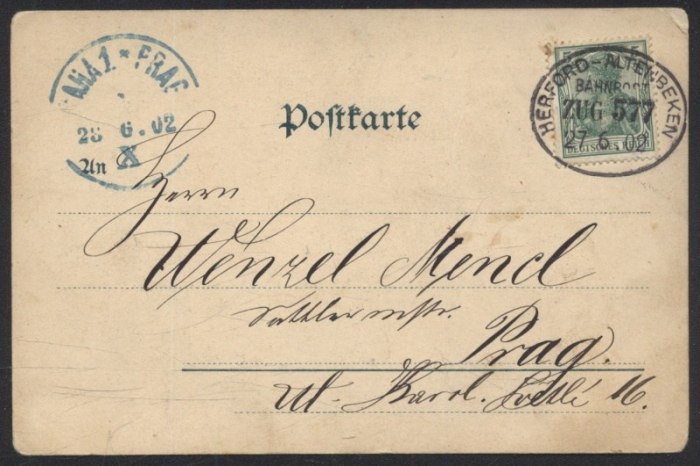 AHA 1 * PRAG
28 6. 02
X
An
Postkarte
5 5
HERFORD-ALTENBEKEN
BAHNPOST
ZUG 577
27 6. 02
DEUTSCHES REICH
Herrn
Wenzel Mencl
Sattlermstr.
Prag.
Ul. Karol. Světlé 16.